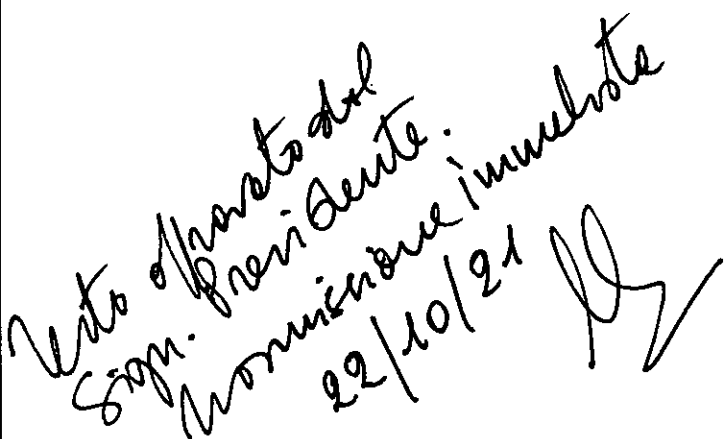 Testo approvato dal
Sign. Presidente.
Trasmissione immediata
22/10/21